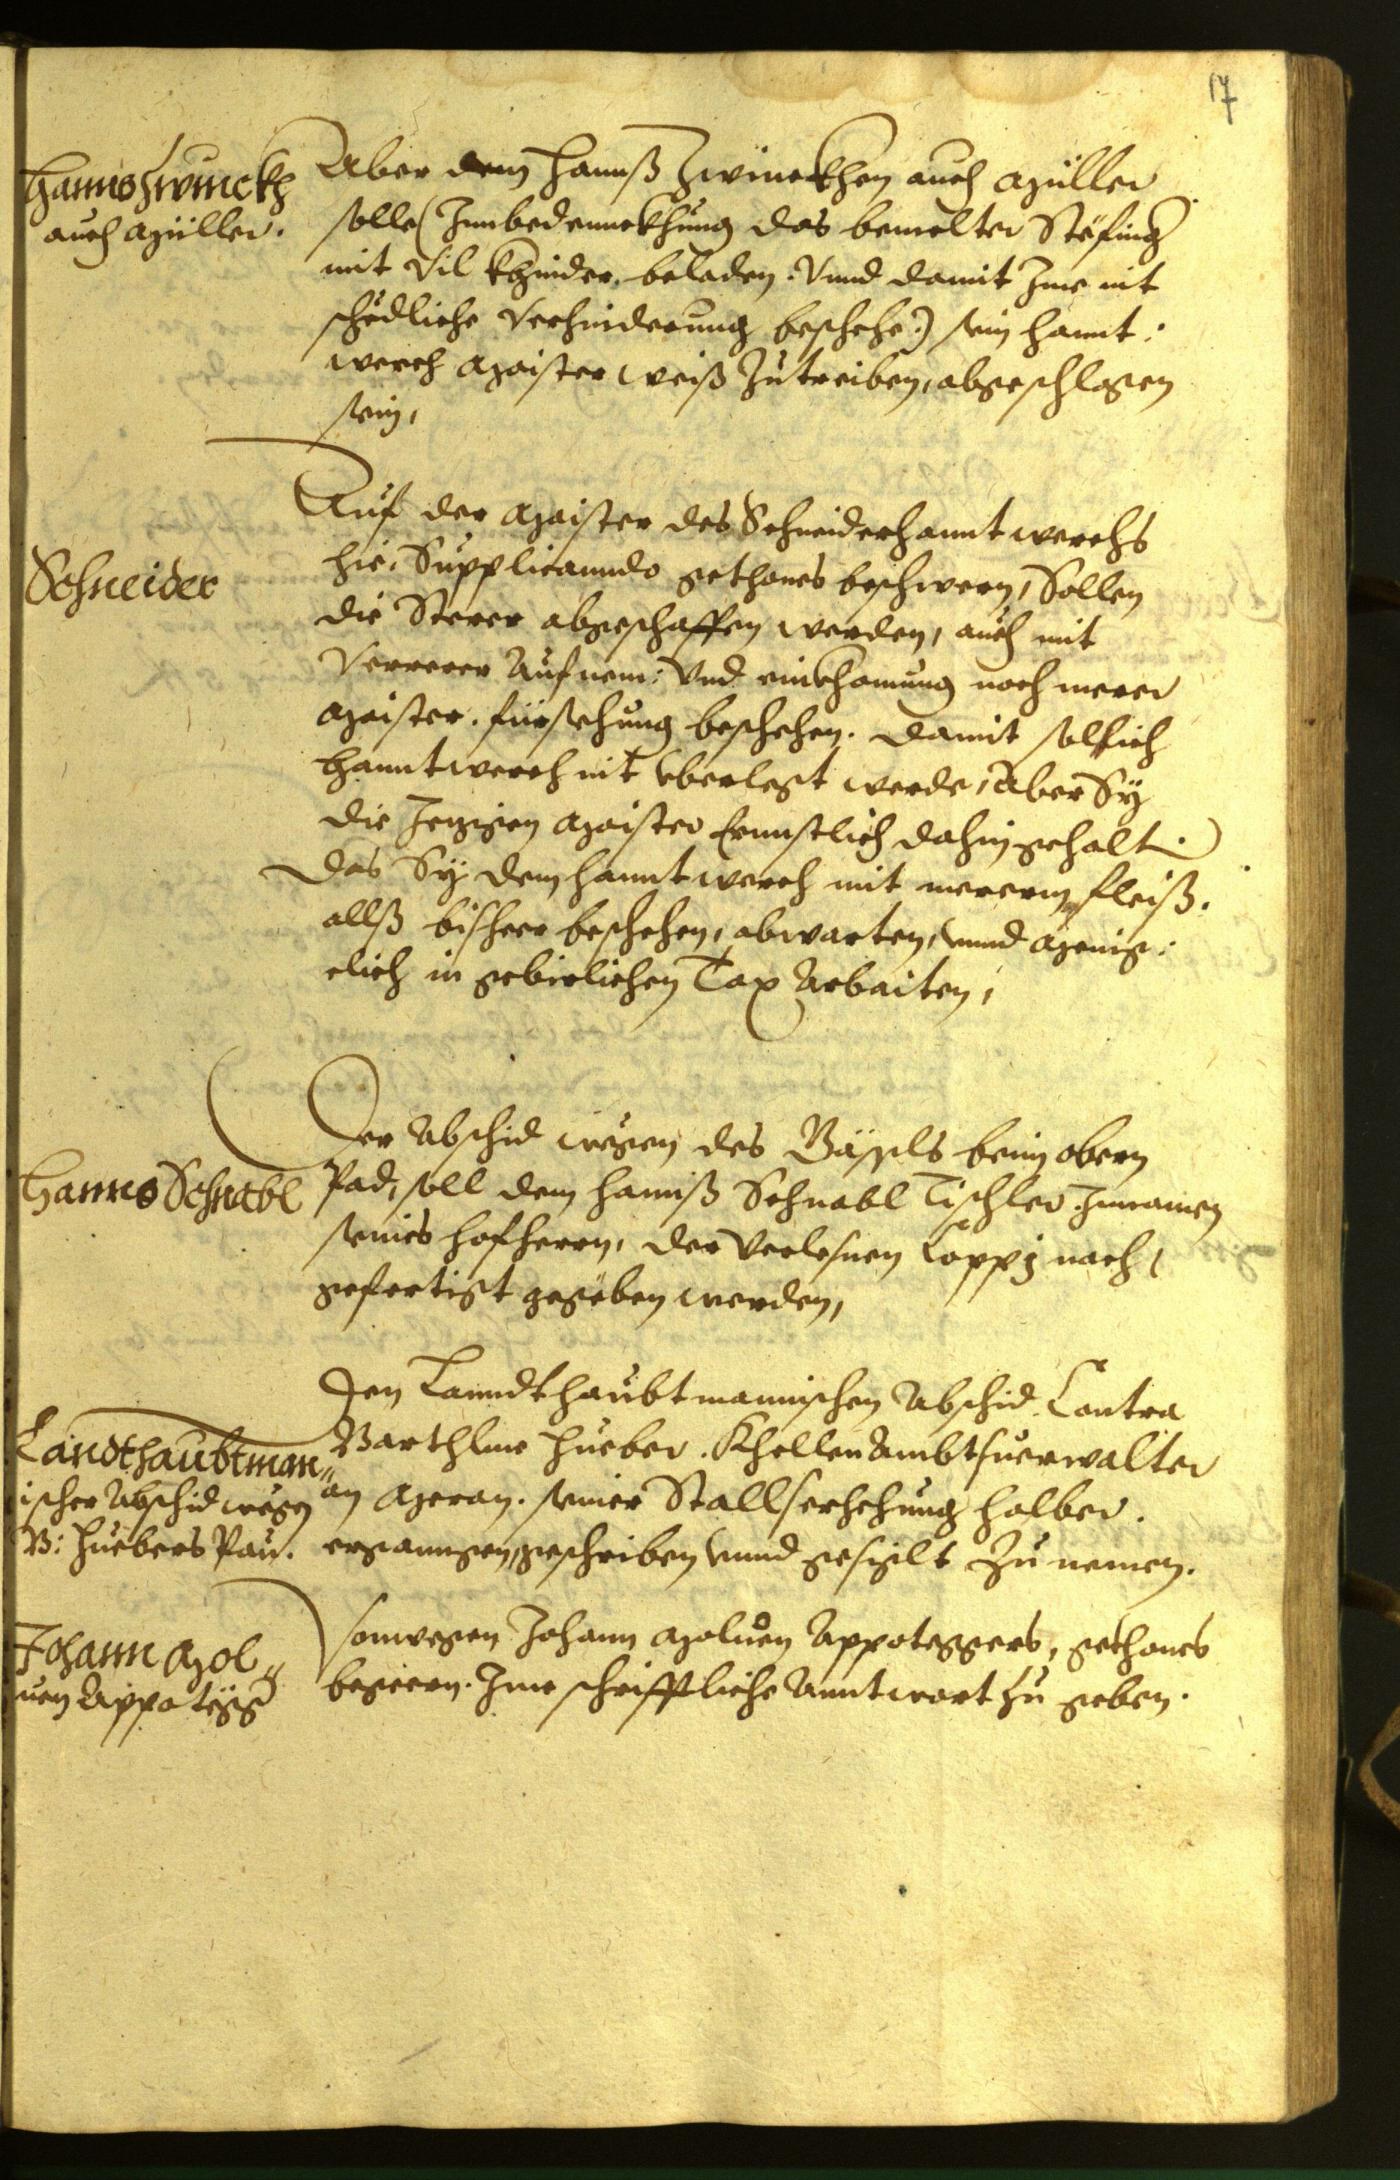 17
Hanns Zwinckh
auch Müller.
Aber dem Hannß Zwinckhen auch Müller
solle (Inn bedennckhung das bemelter Stefing
mit vil Khinder, beladen. Vnnd damit Ime nit
schedliche Verhinderung beschehe:) sein hannt:
werch Maister weiß zutreiben, abgeschlagen
sein,
Schneider
Auf der Maister des Schneiderhanntwerchs
hie, Supplicanndo gethones beschwern, Sollen
die Sterer abgeschaffen werden, auch mit
Verrerer Aufnem: Vnd einkhomung noch merer
Maister. fürsehung beschehen. damit solhich
hanntwerch nit vberlegt werde, Aber Sÿ
die Jezigen Maister Ernnstlich dahin gehalt.
Das Sÿ dem hanntwerch mit mererm fleiß.
allß bisheer beschehen, abwarten, vnnd Menig:
elich in gebirlichen Tax Arbaiten,
Hanns Schnabl
Der Abschid wegen des Gässls beim obern
Pad, soll dem Hannß Schnabl Tischler Innamen
seines hofherrn, der Verlesnen Coppj nach,
gefertigt gegeben werden,
Landthaubtman„
ischer Abschid wegen
B: Huebers Pau.
Den Lanndthaubtmannischen Abschid Contra
Barthlme Hueber. Khellen Ambtsverwalter
an Meran. seiner Stallserhehung halber.
erganngen, geschriben vnnd gesiglt zu nemen.
Johann Mol„
uen Appotegg
Vonwegen Johann Moluen Appoteggers, gethones
begeern. Ime schrifftliche Anntwort zu geben.